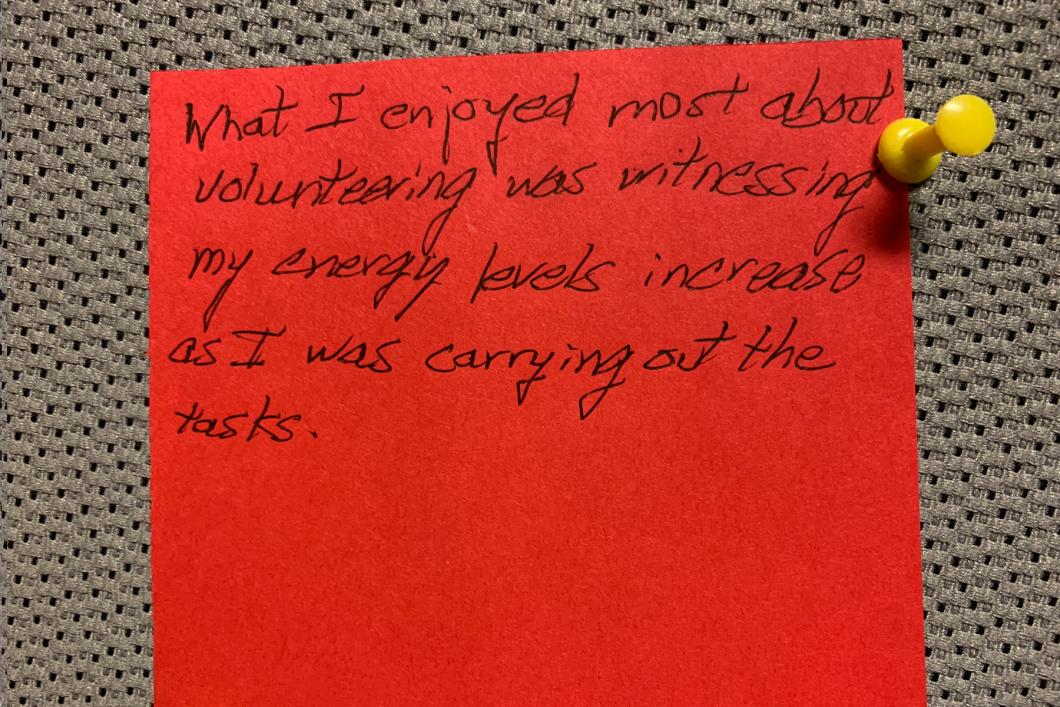 What I enjoyed most about
volunteering was witnessing
my energy levels increase
as I was carrying out the
tasks.